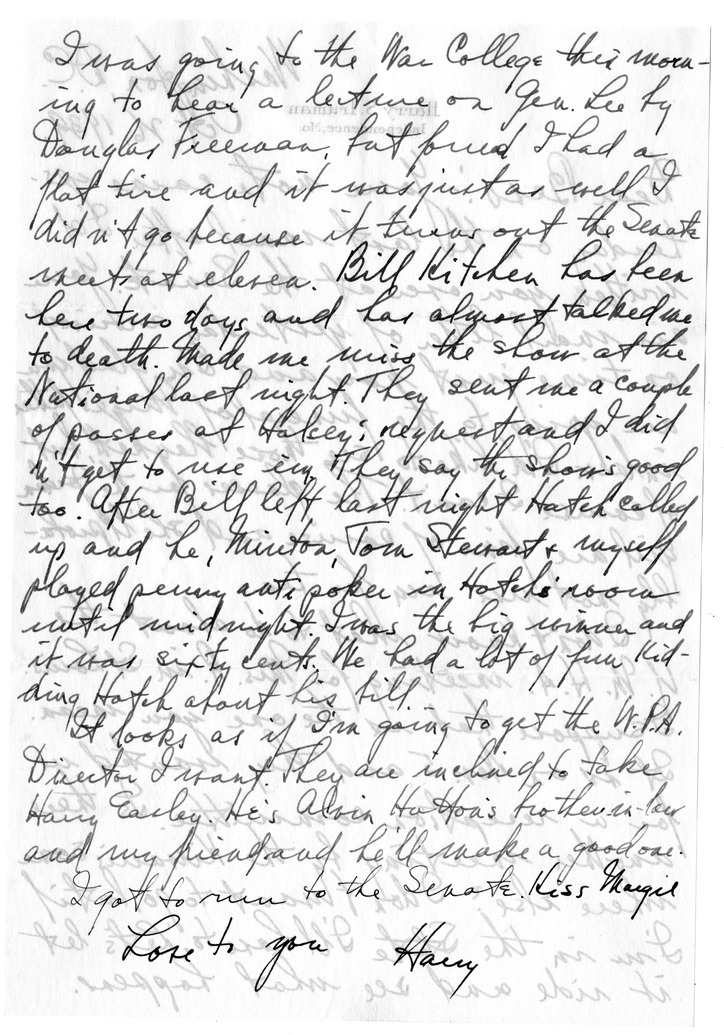 I was going to the War College this morn-
ing to hear a lecture on Gen. Lee by
Douglas Freeman, but found I had a
flat tire and it was just as well I
didn't go because it turns out the Senate
meets at eleven. Bill Kitchen has been
here two days and has almost talked me
to death. Made me miss the show at the
National last night. They sent me a couple
of passes at Halsey's request and I did
n't get to use 'em. They say the show's good
too. After Bill left last night Hatch called
up and he, Minton, Tom Stewart & myself
played penny anti poker in Hatch's room
until midnight. I was the big winner and
it was sixty cents. We had a lot of fun kid-
ding Hatch about his bill.
It looks as if I'm going to get the W.P.A.
Director I want. They are inclined to take
Harry Easley. He's Alvin Hatton's brother-in-law
and my friend and he'll make a good one.
I got to run to the Senate. Kiss Margie
Love to you Harry